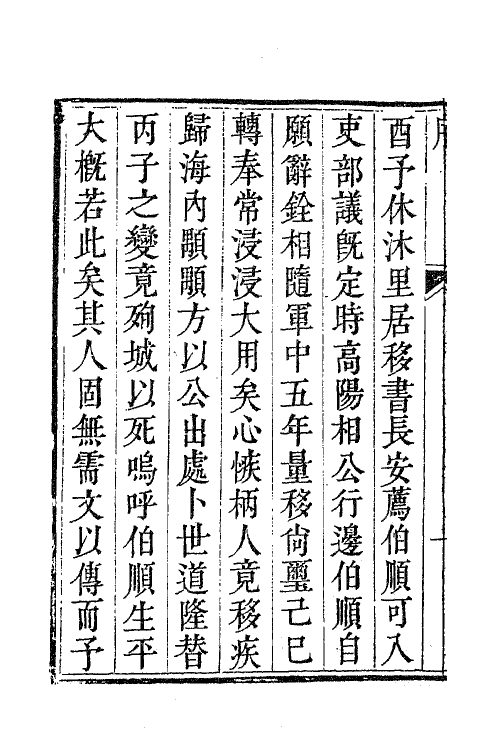 酉予休沐里居移書長安薦伯順可入
吏部議旣定時高陽相公行邊伯順自
願辭銓相隨軍中五年量移尙璽己巳
轉奉常浸浸大用矣心恢柄人竟移疾
歸海內顒顒方以公出處卜世道隆替
丙子之變竟殉城以死嗚呼伯順生平
大槪若此矣其人固無需文以傳而予